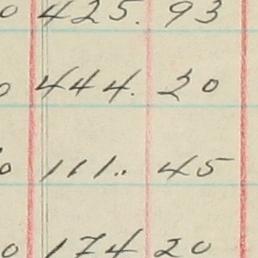 0 425. 93
0 444. 20
0 111.. 45
0 174 20